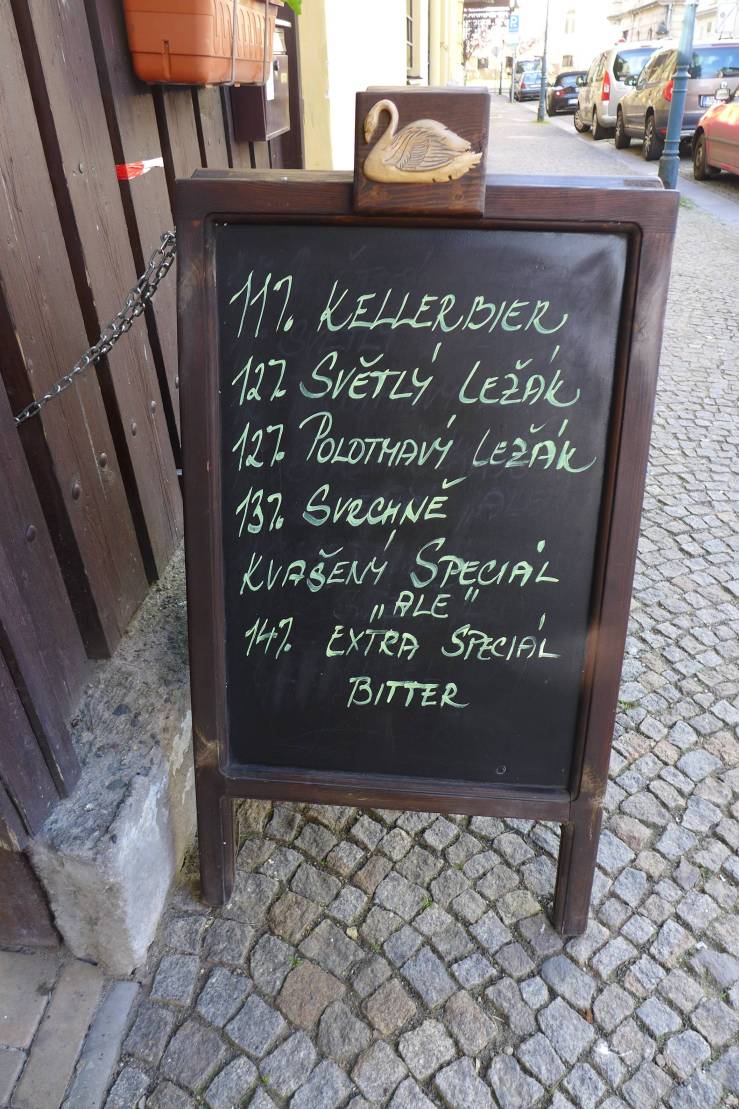 11%. KELLERBIER
12% SVĚTLÝ LEŽÁK
12%. POLOTMAVÝ LEŽÁK
13%. SVRCHNĚ
KVAŠENÝ SPECIÁL
"ALE"
14%. EXTRA SPECIÁL
BITTER